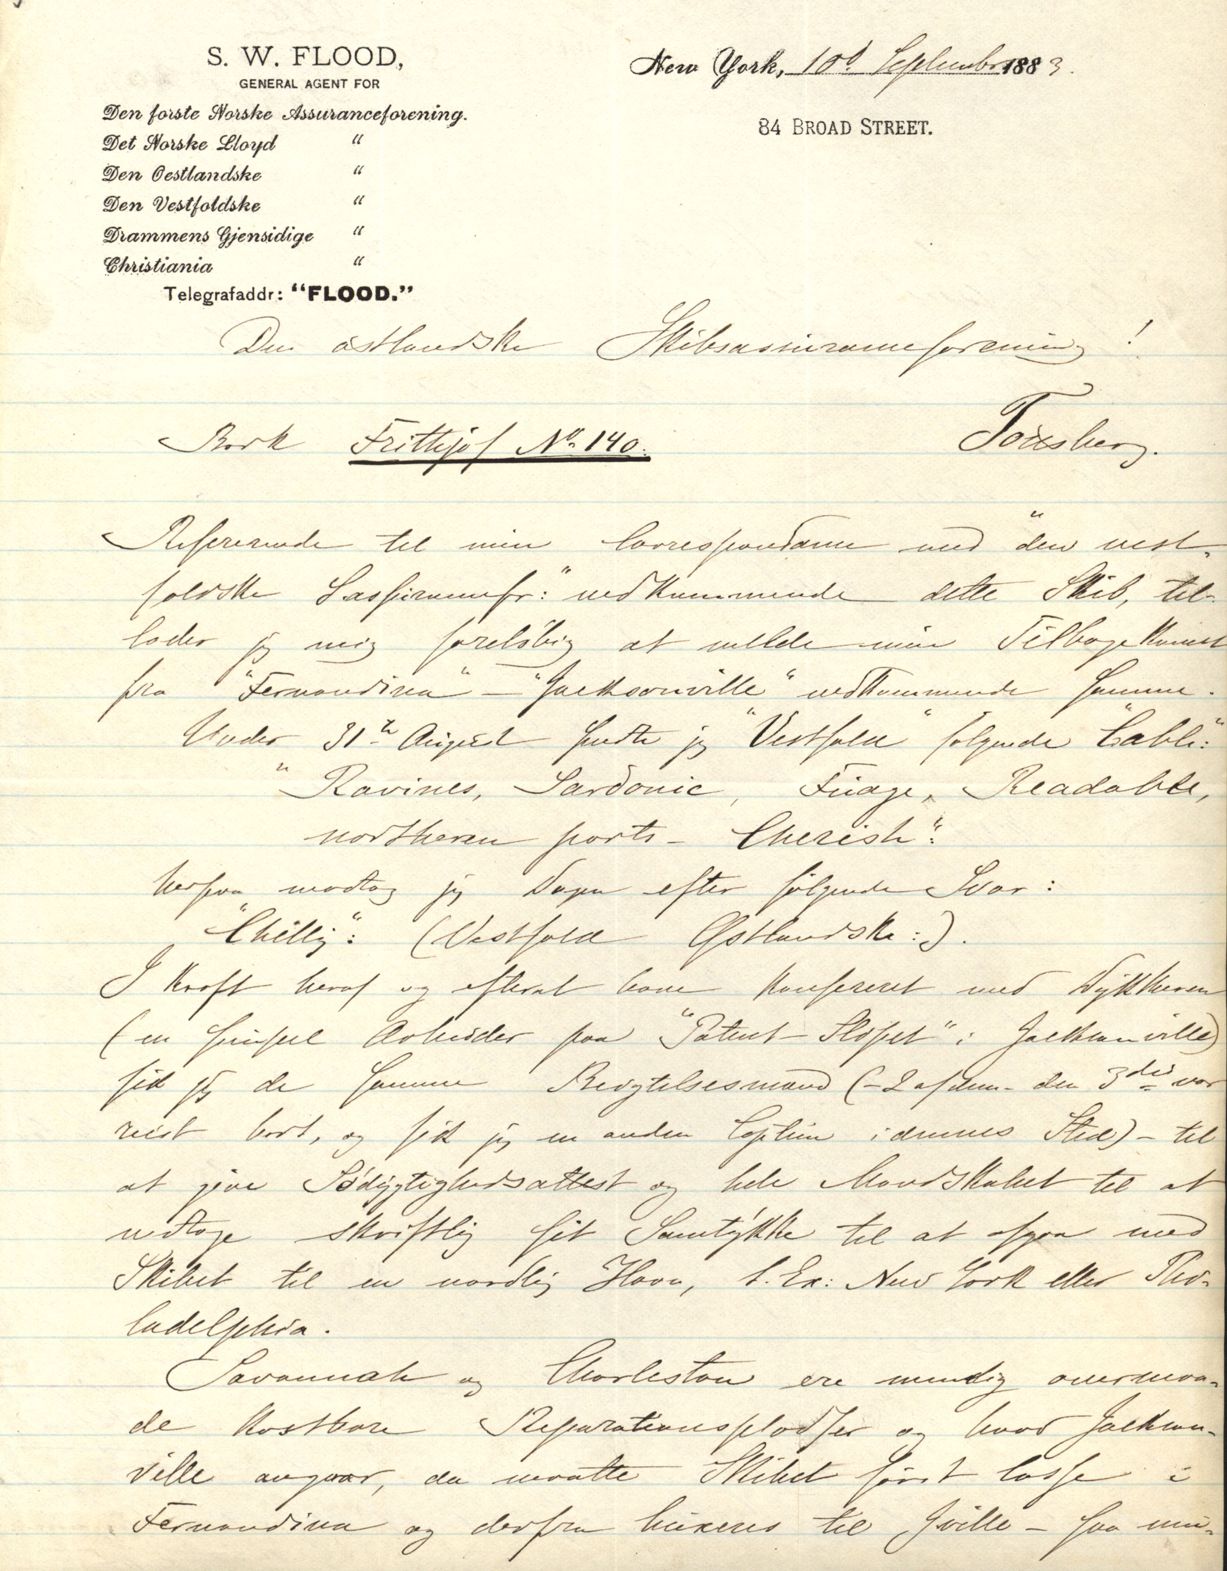 S. W. FLOOD,
GENERAL AGENT FOR
Den forste Norske Assuranceforening.
Det Norske Lloyd "
Den Oestlandske "
Den Vestfoldske "
Drammens Gjensidige "
Christiania "
Telegrafaddr: "FLOOD."
New York, 10d September 1883.
84 BROAD STREET.
Den østlandske Skibsassuranceforening!
Tønsberg.
Bark Frithjof No 140.
Refererende til min Correspondance med "den vest-
foldske" vedkommende dette Skib, til-
lader jeg mig foreløbig at melde min Tilbagekomst
fra "Fernandina" – "Jacksonville" vedkommende samme.
Under 31te August sendte jeg "Vestfold" følgende "Cable":
"Ravines, Sardonic, Fuage, Readable,
northeren ports – Cherish":
herpaa modtog jeg Dagen efter følgende Svar:
"Chilly": (Vestfold Østlandske:).
I Kraft heraf og efterat have konfereret med Dykkeren
(en simpel Arbeider paa "Patent-Slipet" i Jacksonville)
fik jeg de samme Besigtelsesmænd (– 2 af dem – den 3die var
reist bort, og fik jeg en anden Captein i dennes Sted) – til
at give Sødygtighedsattest og hele Mandskabet til at
udtage skriftlig sit Samtykke til at afgaa med
Skibet til en nordlig Havn, t. Ex: New York eller Phi-
ladelphia.
Savannah og Charleston ere nemlig overmaa-
de kostbare Reparationspladser og hvad Jackson-
ville angaar, da maatte Skibet først losse i
Fernandina og derfra buxeres til Jville – saa